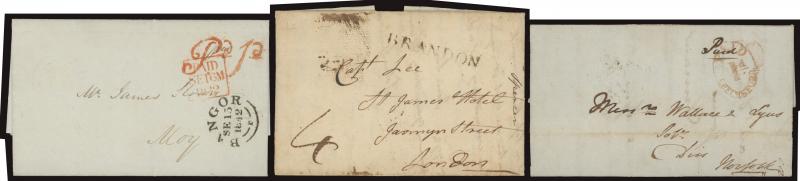 Paid
P1
PAID
SE 16M
1842
Mr. James
Moy
BANGOR
SE 15
1842
BRANDON
Capt. Lee
St James Hotel
Jermyn Street
London
4
Paid
Messrs Wallace & Lyus
Solrs
Diss
Norfolk